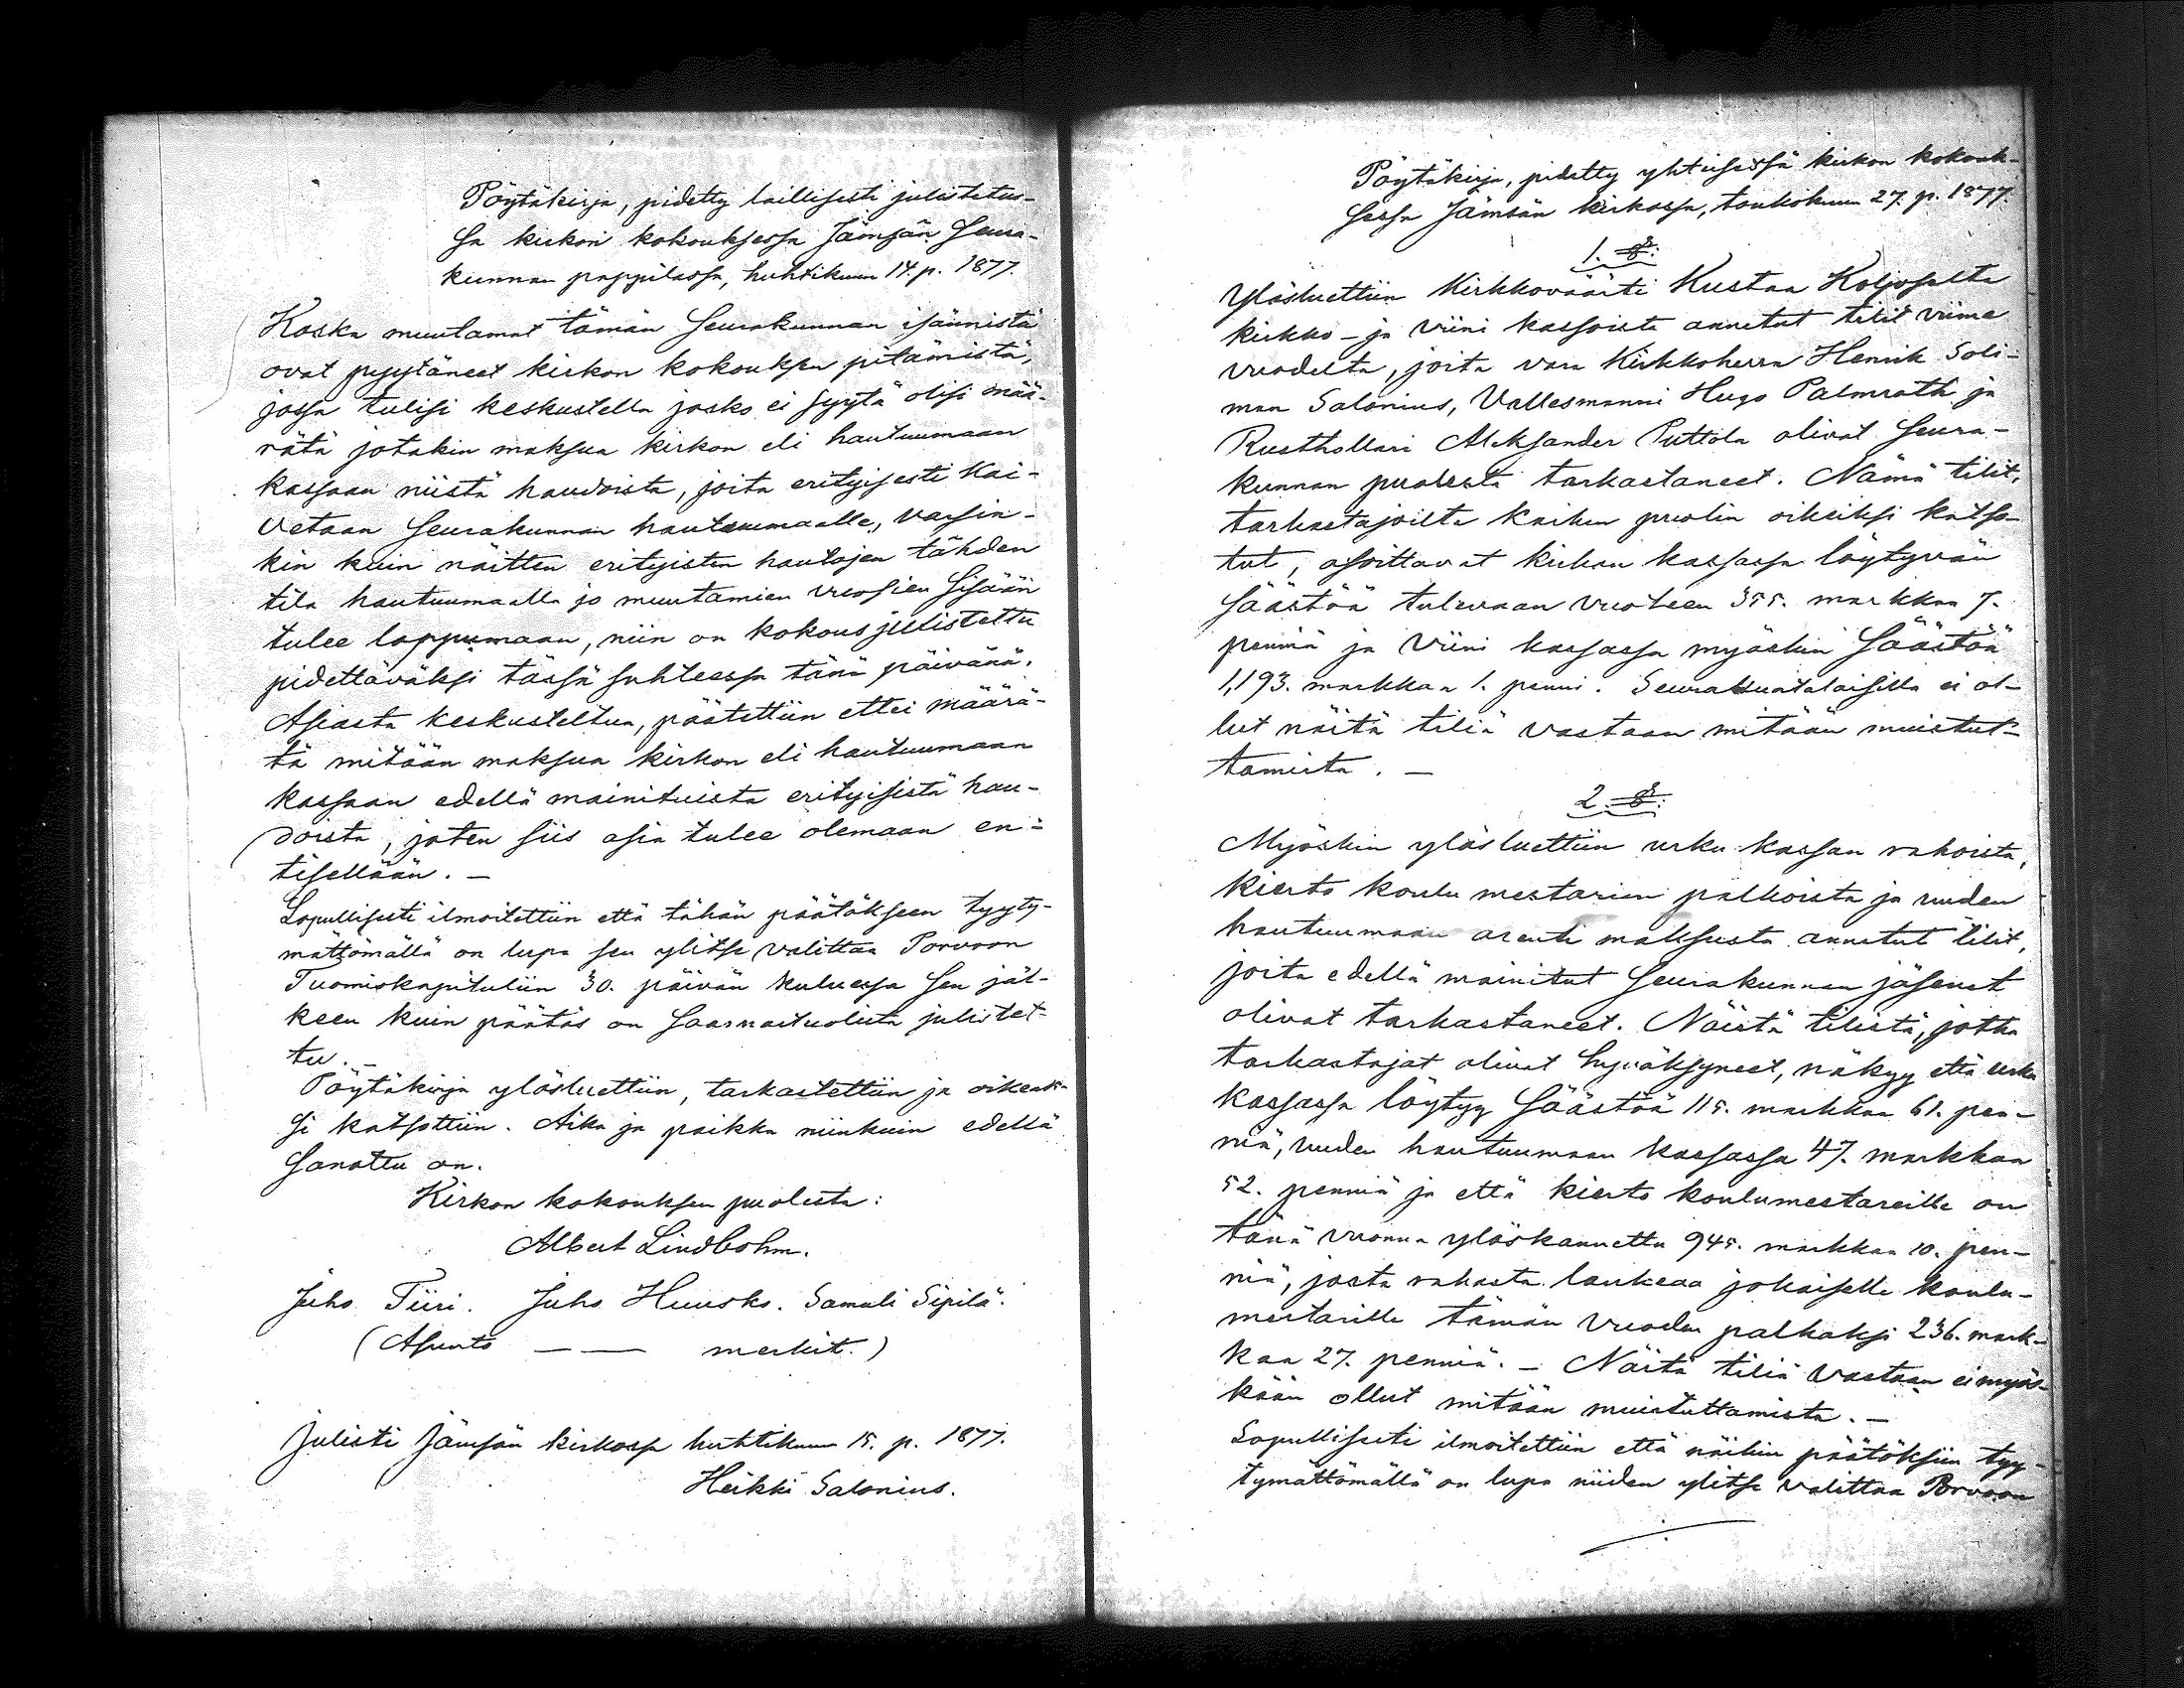 Pöytäkirja, pidetty laillisesti julistetus-
sa kirkon kokouksessa Jämsän Seura-
kunnan pappilassa, huhtikuun 14. p. 1877.
Koska muutamat tämän Seurakunnan isännistä
ovat pyytäneet kirkon kokouksen pitämistä,
jossa tulisi keskustella josko ei syytä olisi mää-
rätä jotakin maksua kirkon eli hautuumaan
kassaan niistä haudoista, joita erityisesti kai-
vetaan Seurakunnan hautuumaalle, varsin-
kin kuin näitten erityisten hautojen tähden
tila hautuumaalla jo muutamien vuosien sisään
tulee loppumaan, niin on kokous julistettu
pidettäväksi tässä suhteessa tänä päivänä.
Asiasta keskusteltua, päätettiin ettei määrä-
tä mitään maksua kirkon eli hautuumaan
kassaan edellä mainituista erityisistä hau-
doista, joten siis asia tulee olemaan en-
tisellään. —
Lopullisesti ilmoitettiin että tähän päätökseen tyyty-
mättömällä on lupa sen ylitse valittaa Porvoon
Tuomiokapituliin 30. päivän kuluessa sen jäl-
keen kuin päätös on Saarnastuolista julistet-
tu. —
Pöytäkirja ylösluettiin, tarkastettiin ja oikeak-
si katsottiin. Aika ja paikka niinkuin edellä
sanottu on.
Kirkon kokouksen puolesta:
Albert Lindbohm.
Juho Tiiri. Juho Huusko. Samuli Sipilä.
(Asunto — — merkit.)
Julisti Jämsän kirkossa huhtikuun 15. p. 1877.
Heikki Salonius.
Pöytäkirja, pidetty yhteisessä kirkon kokouk-
sessa Jämsän kirkossa, toukokuun 27. p. 1877.
1. §:
Ylösluettiin Kirkkoväärti Kustaa Koljosalta
kirkko- ja viini kassoista annetut tilit viime
vuodelta, joita vara Kirkkoherra Henrik Soli-
man Salonius, Vallesmanni Hugo Palmroth ja
Rusthollari Aleksander Puttola olivat Seura-
kunnan puolesta tarkastaneet. Nämä tilit,
tarkastajoilta kaiken puolin oikeiksi katso-
tut, osoittavat kirkon kassassa löytyvän
Säästöä tulevaan vuoteen 355. markkaa 7.
penniä ja Viini kassassa myöskin Säästöä
1,193. markkaa 1. penni. Seurakuntalaisilla ei ol-
lut näitä tiliä vastaan mitään muistut-
tamista. —
2. §:
Myöskin ylösluettiin urku kassan rahoista,
kierto koulu mestarien palkoista ja uuden
hautuumaan arenti maksusta annetut tilit,
joita edellä mainitut Seurakunnan jäsenet
olivat tarkastaneet. Näistä tilistä, jotka
tarkastajat olivat hyväksyneet, näkyy että urku
kassassa löytyy Säästöä 115. markkaa 61. pen-
niä, uuden hautuumaan kassassa 47. markkaa
52. penniä ja että kierto koulumestareille on
tänä vuonna ylöskannettu 945. markkaa 10. pen-
niä, josta rahasta lankeaa jokaiselle koulu-
mestarille tämän vuoden palkaksi 236. mark-
kaa 27. penniä. — Näitä tiliä vastaan ei myös-
kään ollut mitään muistuttamista. —
Lopullisesti ilmoitettiin että näihin päätöksiin tyy-
tymättömällä on lupa niiden ylitse valittaa Porvoon